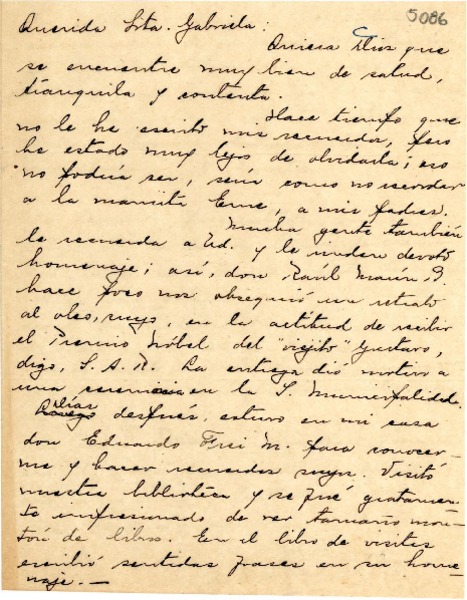 5086
Querida Srta. Gabriela:
Quiera Dios que
se encuentre muy bien de salud,
tranquila y contenta.
Hace tiempo que
no le he escrito mis recuerdos, pero
he estado muy lejos de olvidarla; eso
no podría ser, sería como no recordar
a la mamita Eme, a mis padres.
Mucha gente también
le recuerda a Ud. y le rinden devoto
homenaje; así, don Raúl Marín B.
hace poco nos obsequió un retrato
al óleo, suyo, en la actitud de recibir
el Premio Nóbel del "viejito" Gustavo,
digo, S. A. R. La entrega dió motivo a
una en la I. Municipalidad.
Días después, estuvo en mi casa
don Eduardo Frei M. para conocer-
me y hacer recuerdos suyos. Visitó
nuestra biblioteca y se fué gratamen-
te impresionado de ver tamaño mon-
tón de libros. En el libro de visitas
escribió sentidas frases en su home-
naje. —